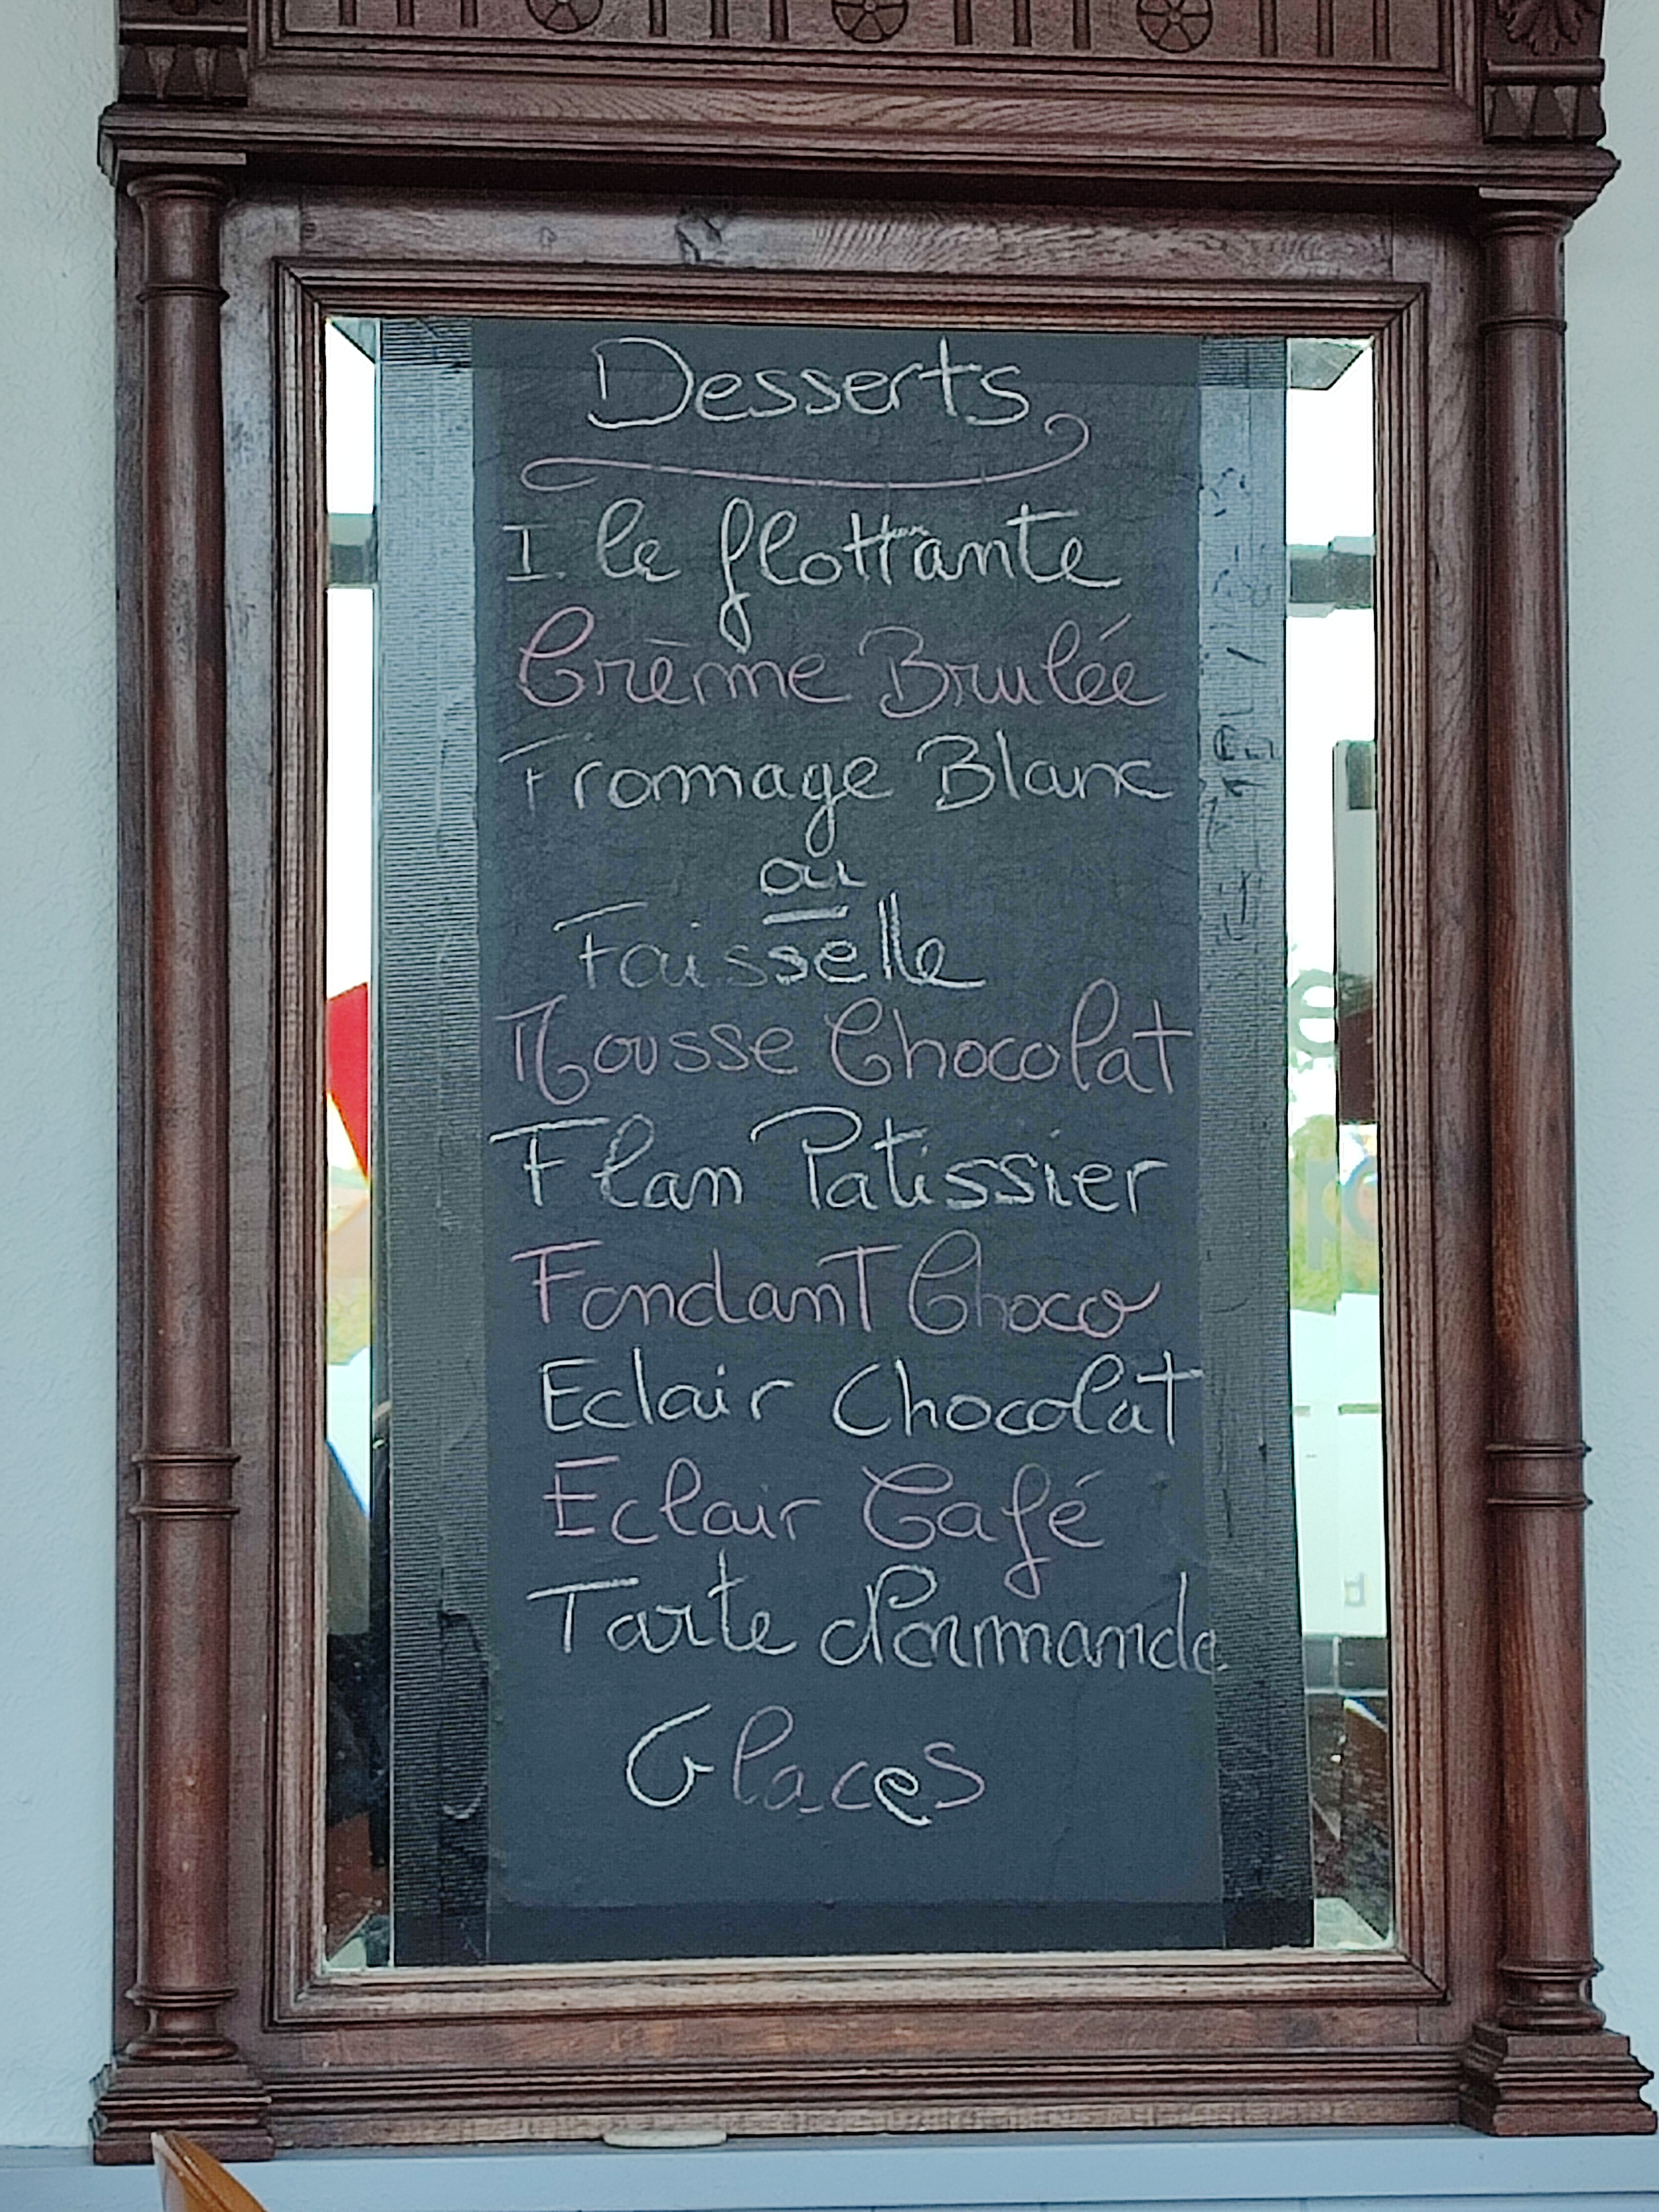 Desserts
Ile flottante
Crème Brulée
Fromage Blanc
ou
Faisselle
Mousse Chocolat
Flan Patissier
Fondant Choco
Eclair Chocolat
Eclair Café
Tarte Normande
Glaces